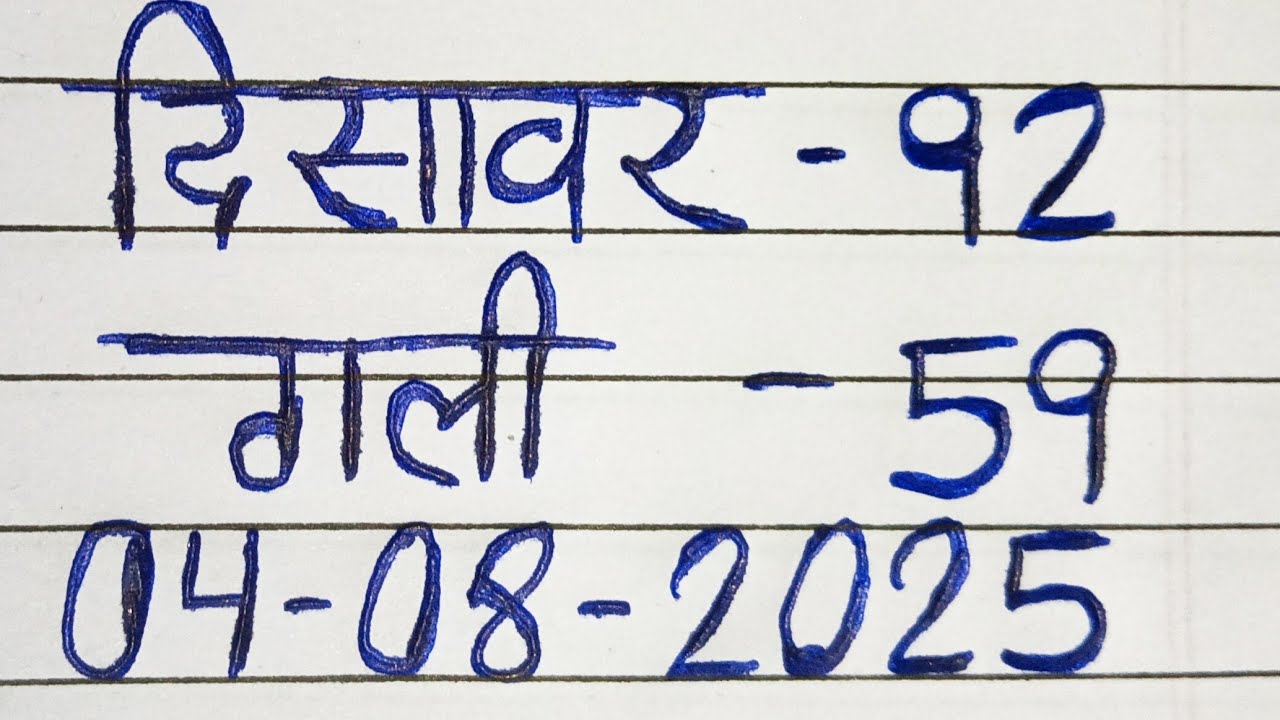 दिसावर - 92
गली - 59
04-08-2025